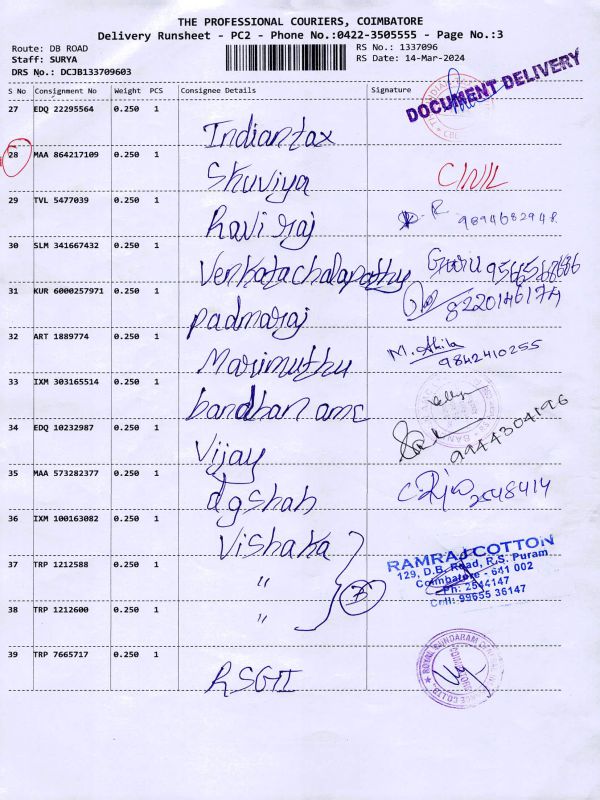 THE PROFESSIONAL COURIERS, COIMBATORE
Delivery Runsheet - PC2 - Phone No.:0422-3505555 - Page No.:3
Route: DB ROAD
Staff: SURYA
DRS No.: DCJB133709603
RS No.: 1337096
RS Date: 14-Mar-2024
S No Consignment No Weight PCS Consignee Details Signature
DOCUMENT DELIVERY
27 EDQ 22295564 0.250 1 Indiantax
28 MAA 864217109 0.250 1 Shuviya CINIL
29 TVL 5477039 0.250 1 Raviraj
30 SLM 341667432 0.250 1 Venkatachalapathy Guru
31 KUR 6000257971 0.250 1 Padmaraj 8220146174
32 ART 1889774 0.250 1 Marimuthu M. Akila 9842410255
33 IXM 303165514 0.250 1 bandhan amc
34 EDQ 10232987 0.250 1 Vijay 9944304196
35 MAA 573282377 0.250 1 dgshah 2548414
36 IXM 100163082 0.250 1 Vishaka
37 TRP 1212588 0.250 1 "
38 TRP 1212600 0.250 1 "
RAMRAJ COTTON
129, D.B. Road, R.S. Puram
Coimbatore - 641 002
Ph: 2544147
Cell: 99655 36147
39 TRP 7665717 0.250 1 RSGI